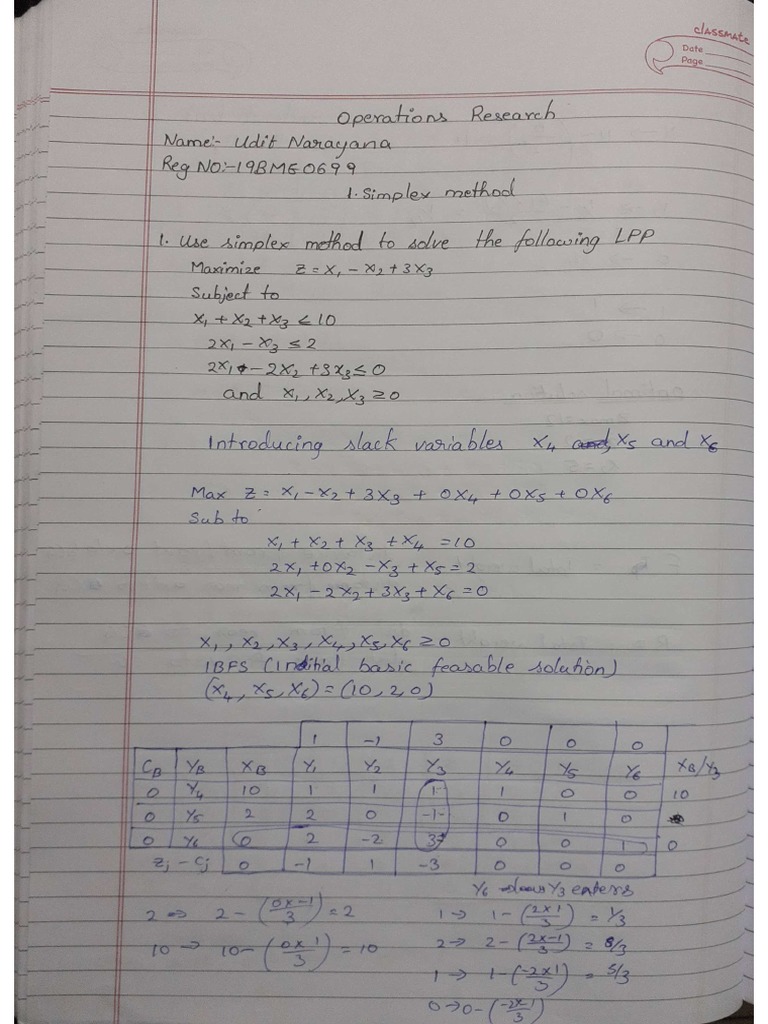 classmate
Date
Page
Operations Research
Name:- Udit Narayana
Reg NO:-19BME0699
1. Simplex method
1. Use simplex method to solve the following LPP
Maximize Z = X₁ - X₂ + 3X₃
Subject to
X₁ + X₂ + X₃ ≤ 10
2X₁ - X₃ ≤ 2
2X₁ - 2X₂ + 3X₃ ≤ 0
and X₁, X₂, X₃ ≥ 0
Introducing slack variables X₄, X₅ and X₆
Max Z = X₁ - X₂ + 3X₃ + 0X₄ + 0X₅ + 0X₆
Sub to
X₁ + X₂ + X₃ + X₄ = 10
2X₁ + 0X₂ - X₃ + X₅ = 2
2X₁ - 2X₂ + 3X₃ + X₆ = 0
X₁, X₂, X₃, X₄, X₅, X₆ ≥ 0
IBFS (Initial basic feasable solution)
(X₄, X₅, X₆) = (10, 2, 0)
1 -1 3 0 0 0
C_B Y_B X_B Y₁ Y₂ Y₃ Y₄ Y₅ Y₆ X_B/Y₃
0 Y₄ 10 1 1 1 1 0 0 10
0 Y₅ 2 2 0 -1 0 1 0
0 Y₆ 0 2 -2 3 0 0 1 0
Zj - Cj 0 -1 1 -3 0 0 0
Y₆ Y₃ enters
2 ⇒ 2 - (0x-1/3) = 2
10 → 10 - (0x1/3) = 10
1 → 1 - (2x1/3) = 1/3
2 → 2 - (2x-1/3) = 8/3
1 → 1 - (-2x1/3) = 5/3
0 → 0 - (-2x-1/3)